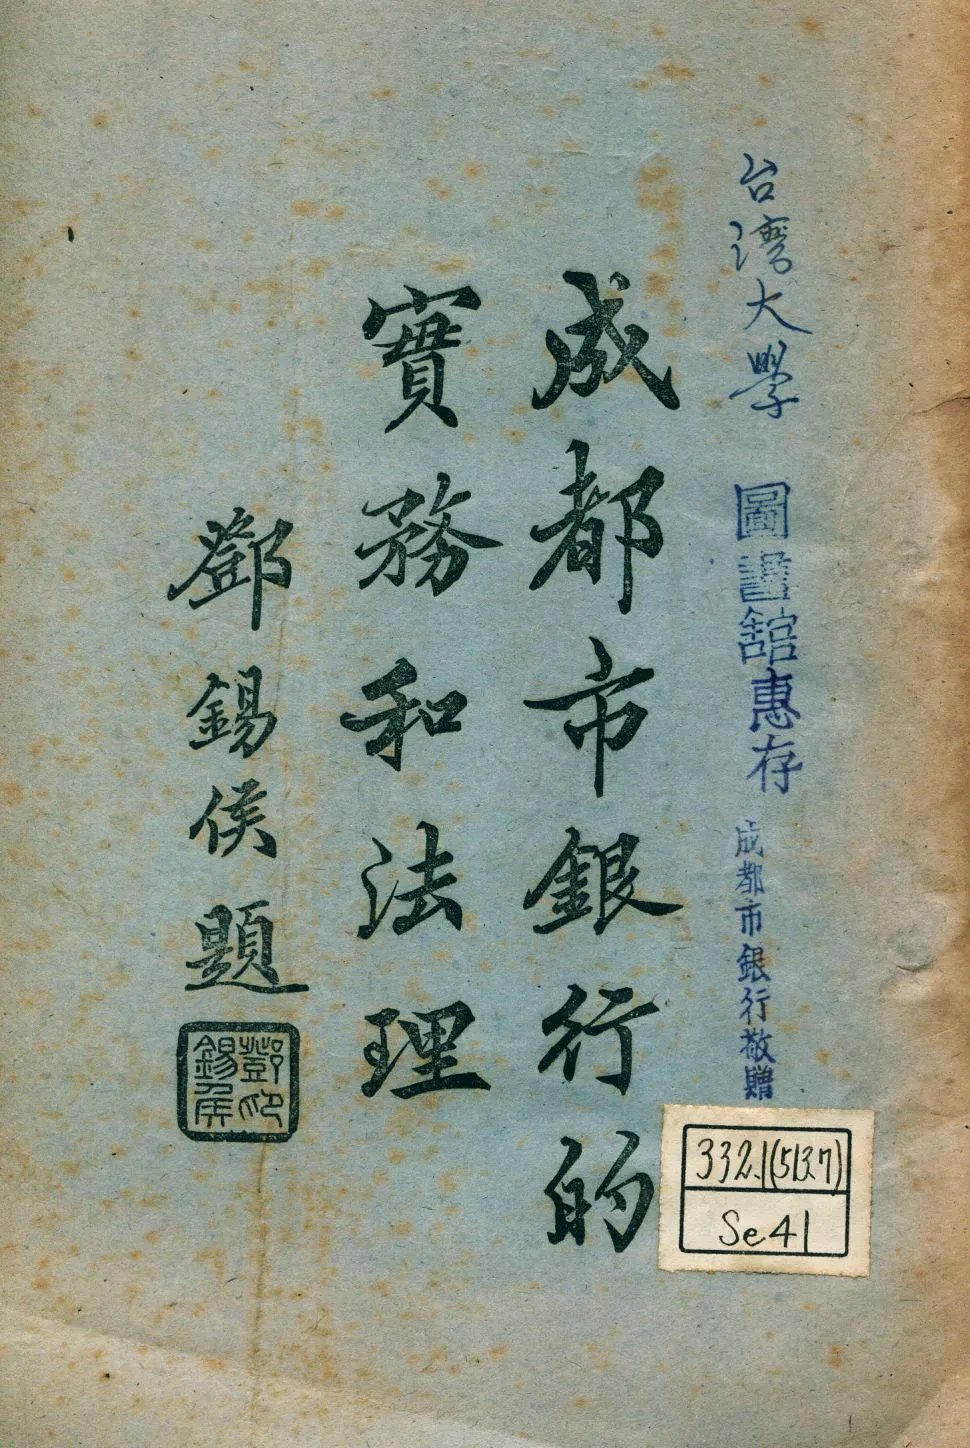 台湾大學 圖書館惠存 成都市銀行敬贈
成都市銀行的
實務和法理
鄧錫侯題
鄧錫侯印
332.1(513.7)
Se41